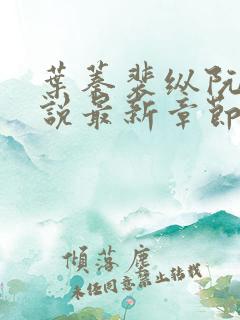 葉蓁裴纵阮
説最新章節
傾落塵
未经同意禁止转载